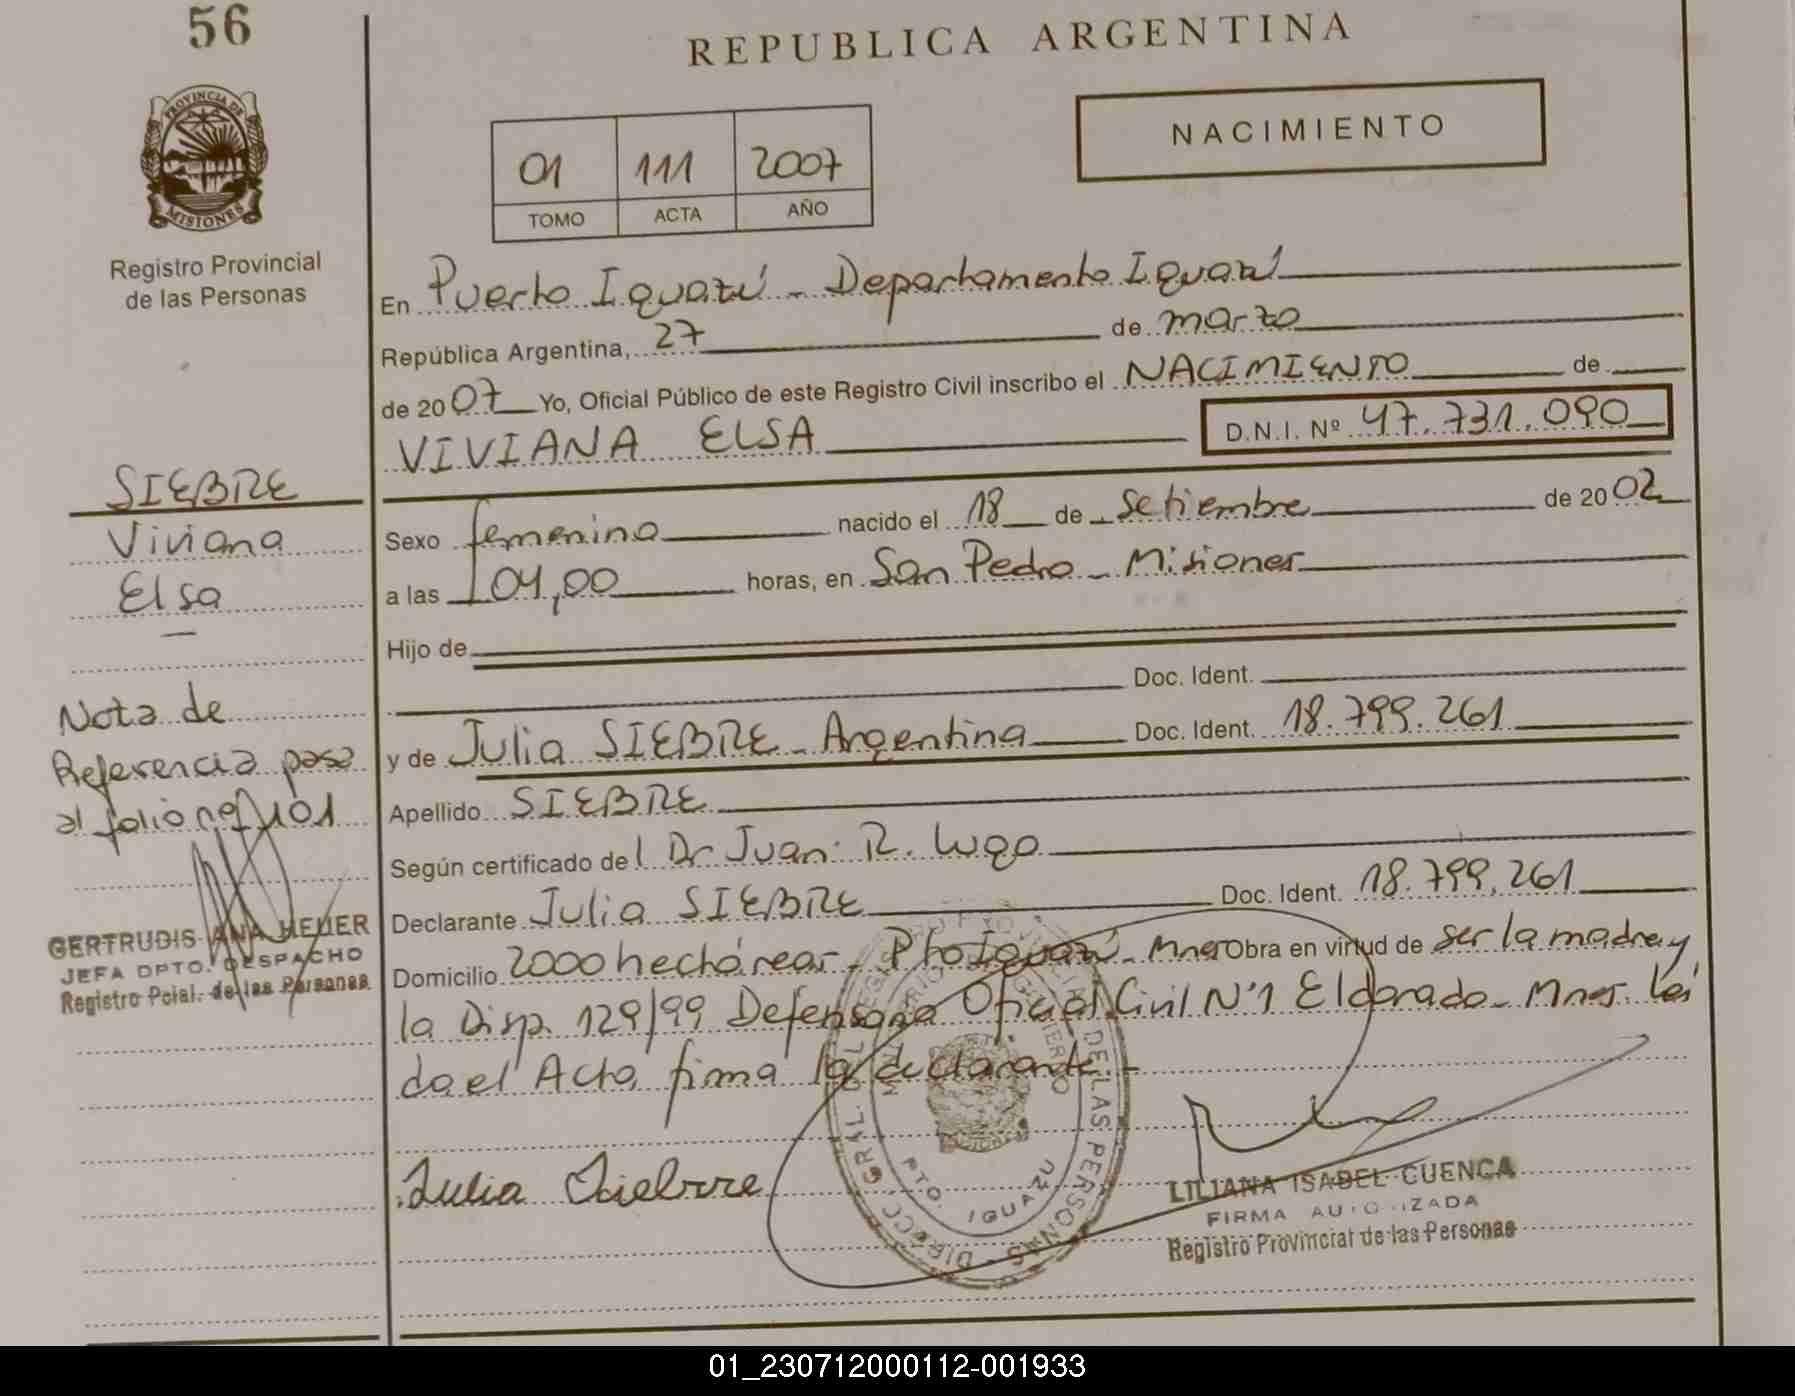 56
REPUBLICA ARGENTINA
PROVINCIA DE
MISIONES
Registro Provincial
de las Personas
NACIMIENTO
01 111 2007
TOMO ACTA AÑO
En Puerto Iguazú - Departamento Iguazú
República Argentina, 27 de marzo
de 2007 Yo, Oficial Público de este Registro Civil inscribo el NACIMIENTO de
VIVIANA ELSA D.N.I. Nº 47.731.090
Sexo femenino nacido el 18 de Setiembre de 2002
a las 04,00 horas, en San Pedro - Misiones
Hijo de
Doc. Ident.
y de Julia SIEBRE - Argentina Doc. Ident. 18.799.261
Apellido SIEBRE
Según certificado del Dr Juan R. Lugo
Declarante Julia SIEBRE Doc. Ident. 18.799.261
Domicilio 2000 hectáreas - Pto Iguazú - Mnes Obra en virtud de ser la madre y
la Disp. 129/99 Defensoria Oficial Civil Nº1 Eldorado - Mnes. Leí
do el Acta, firma la declarante -
Julia Siebrre
SIEBRE
Viviana
Elsa
Nota de
Referencia pasa
al folio nº 101
GERTRUDIS ANA HEUER
JEFA DPTO. DESPACHO
Registro Pcial. de las Personas
DE LAS PERSONAS
PTO. IGUAZU
LILIANA ISABEL CUENCA
FIRMA AUTORIZADA
Registro Provincial de las Personas
01_230712000112-001933